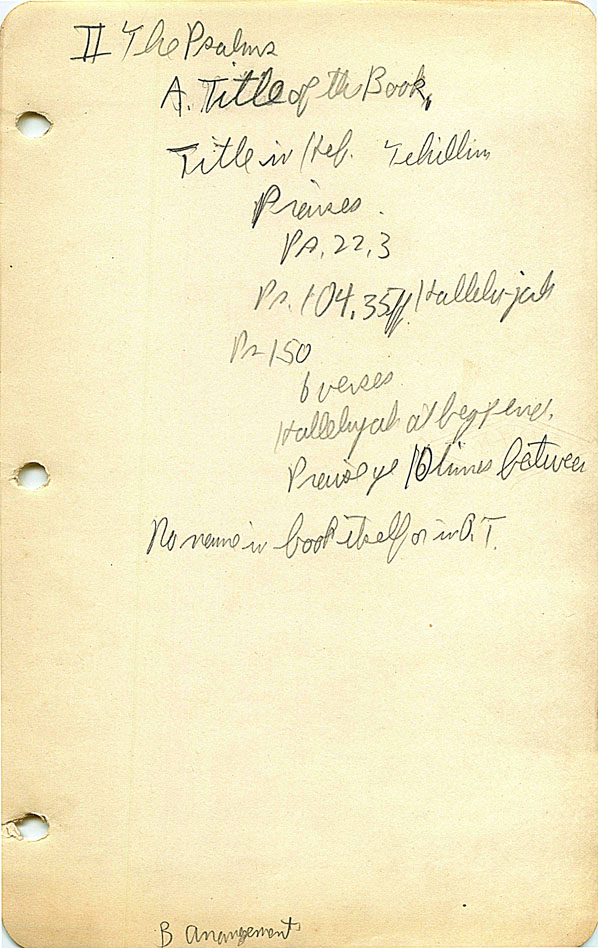 II The Psalms
A. Title of the Book.
Title in Heb. Tehillim
Praises.
Ps. 22.3
Ps. 104.35ff. Hallelujah
Ps 150
6 verses
Hallelujah at beg & end.
Praise ye 10 times between
No name in book itself or in O.T.
B Arrangement